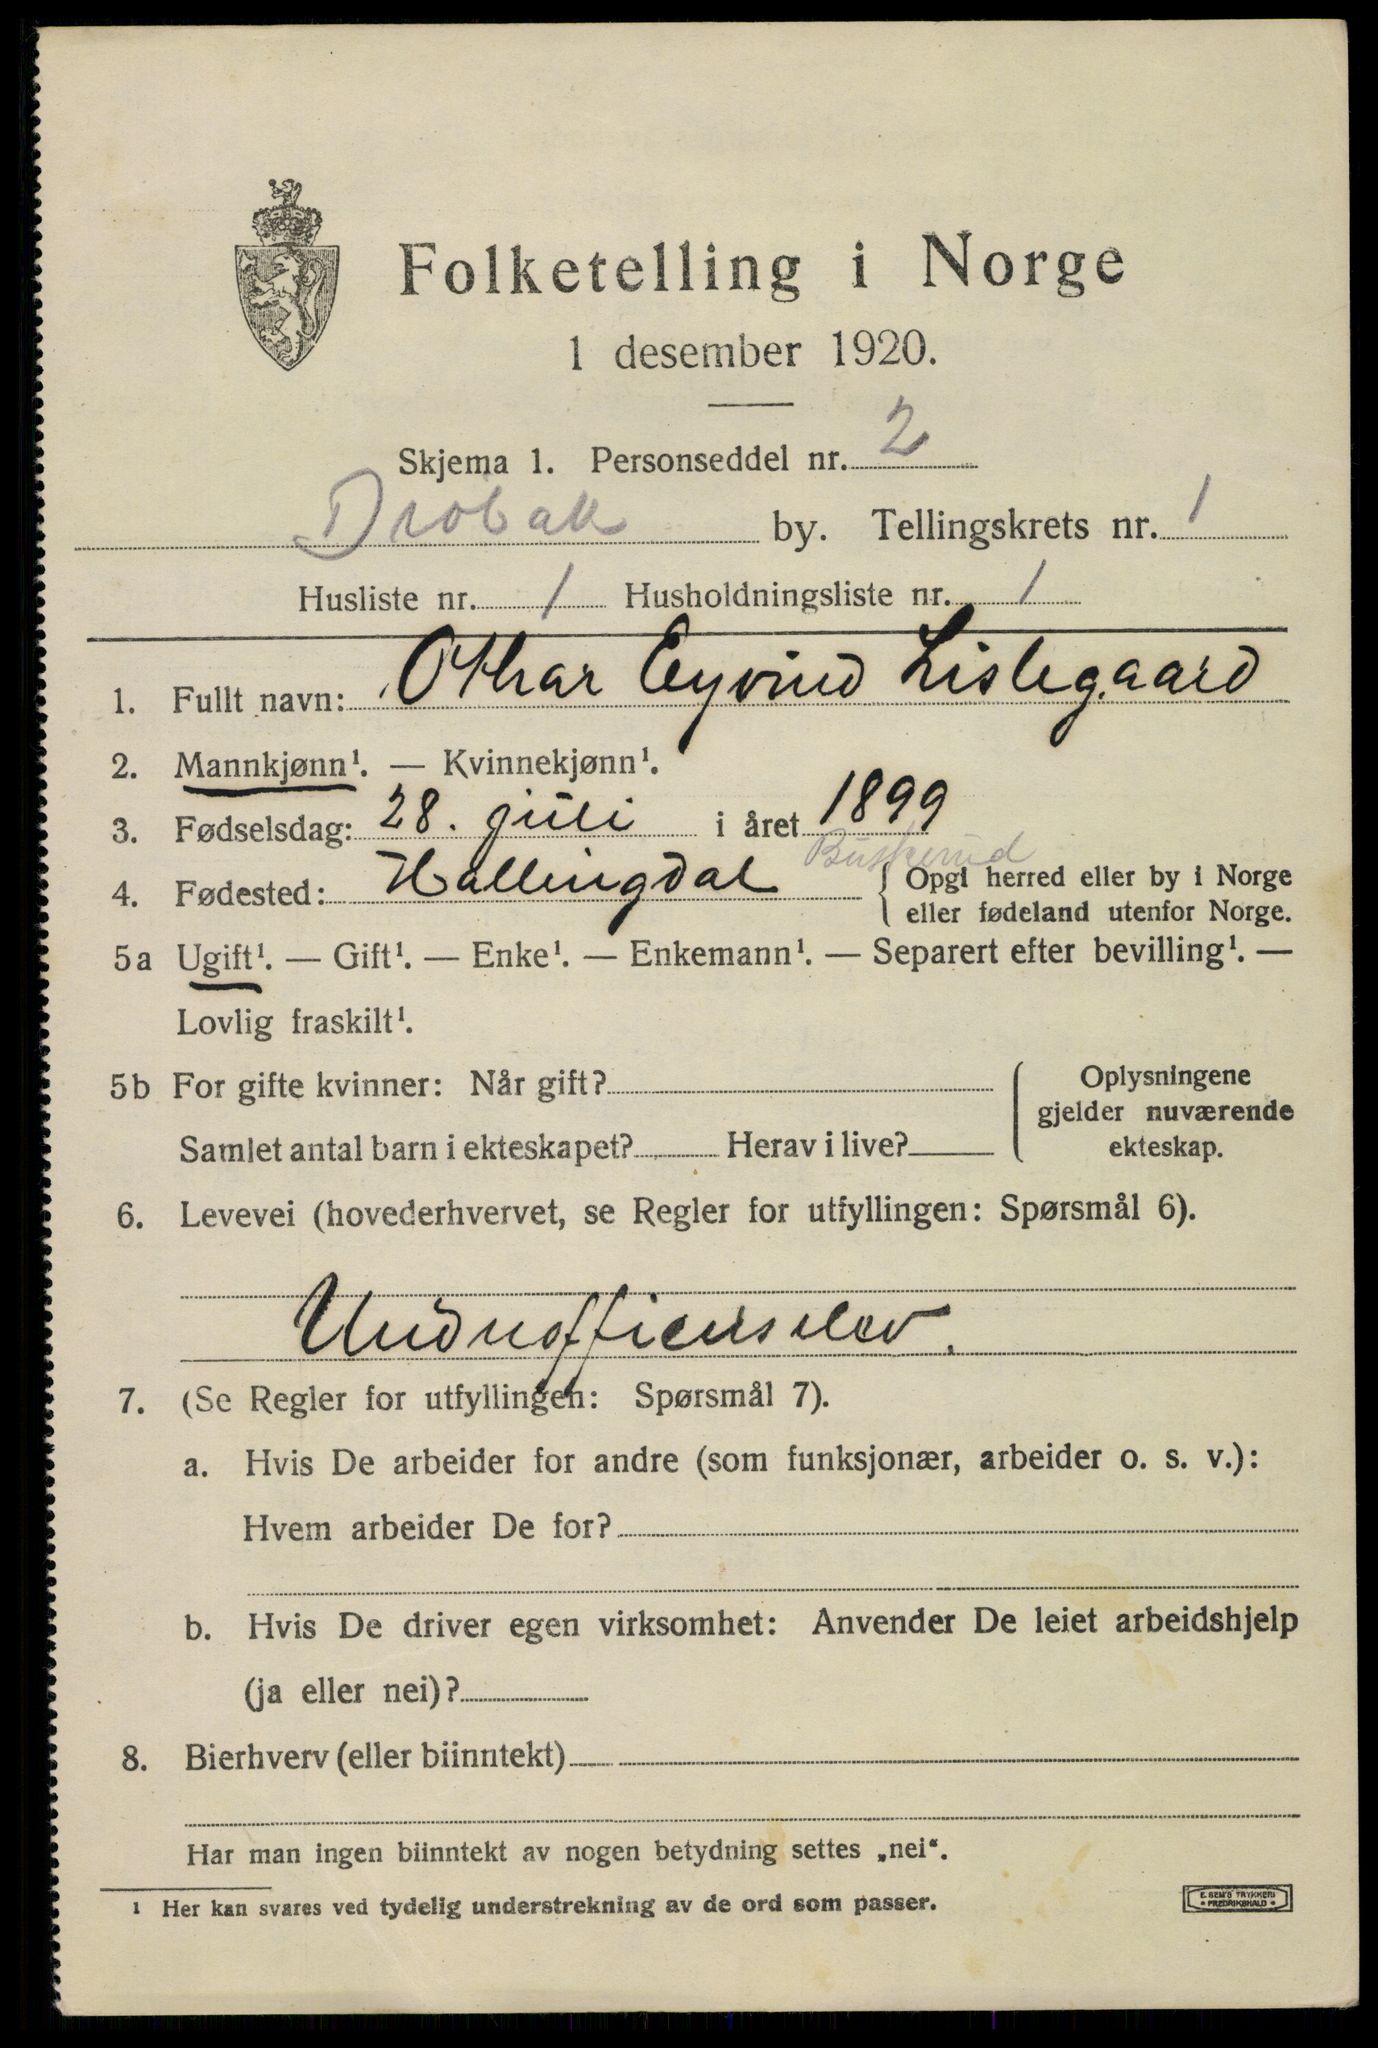 Folketelling i Norge
1 desember 1920.
Skjema 1. Personseddel nr. 2
Drøbak by. Tellingskrets nr. 1
Husliste nr. 1 Husholdningsliste nr. 1
1. Fullt navn: Othar Eyvind Lislegaard
2. Mannkjønn¹. — Kvinnekjønn¹.
3. Fødselsdag: 28. juli i året 1899
Buskerud
4. Fødested: Hallingdal { Opgi herred eller by i Norge
eller fødeland utenfor Norge.
5a Ugift¹. — Gift¹. — Enke¹. — Enkemann¹. — Separert efter bevilling¹. —
Lovlig fraskilt¹.
5b For gifte kvinner: Når gift?
Samlet antal barn i ekteskapet? Herav i live?
Oplysningene
gjelder nuværende
ekteskap.
6. Levevei (hovederhvervet, se Regler for utfyllingen: Spørsmål 6).
Undnofficerselev.
7. (Se Regler for utfyllingen: Spørsmål 7).
a. Hvis De arbeider for andre (som funksjonær, arbeider o. s. v.):
Hvem arbeider De for?
b. Hvis De driver egen virksomhet: Anvender De leiet arbeidshjelp
(ja eller nei)?
8. Bierhverv (eller biinntekt)
Har man ingen biinntekt av nogen betydning settes „nei“.
¹ Her kan svares ved tydelig understrekning av de ord som passer.
E. SEM'S TRYKKERI
FREDRIKSHALD